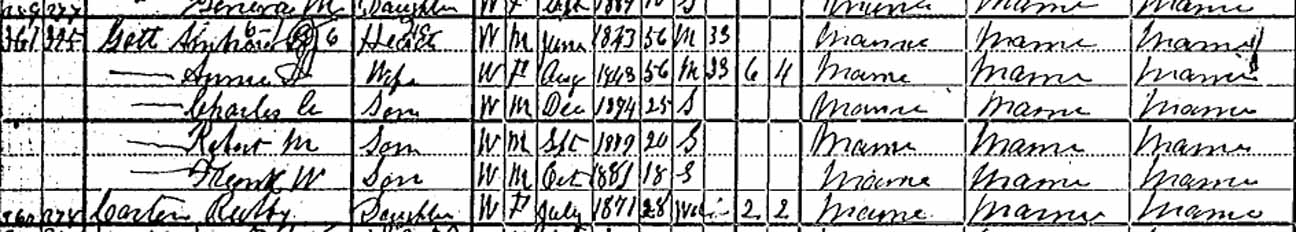 259 277 Geneva M Daughter W F Sept 1889 10 S Maine Maine Maine
261 225 Gott 6 6 Head W M June 1843 56 M 33 Maine Maine Maine
—— Annie Wife W F Aug 1843 56 M 33 6 4 Maine Maine Maine
—— Charles C Son W M Dec 1874 25 S Maine Maine Maine
—— Robert M Son W M Sept 1879 20 S Maine Maine Maine
—— Frank W Son W M Oct 1881 18 S Maine Maine Maine
Carter Ruby Daughter W F July 1871 28 2 2 Maine Maine Maine